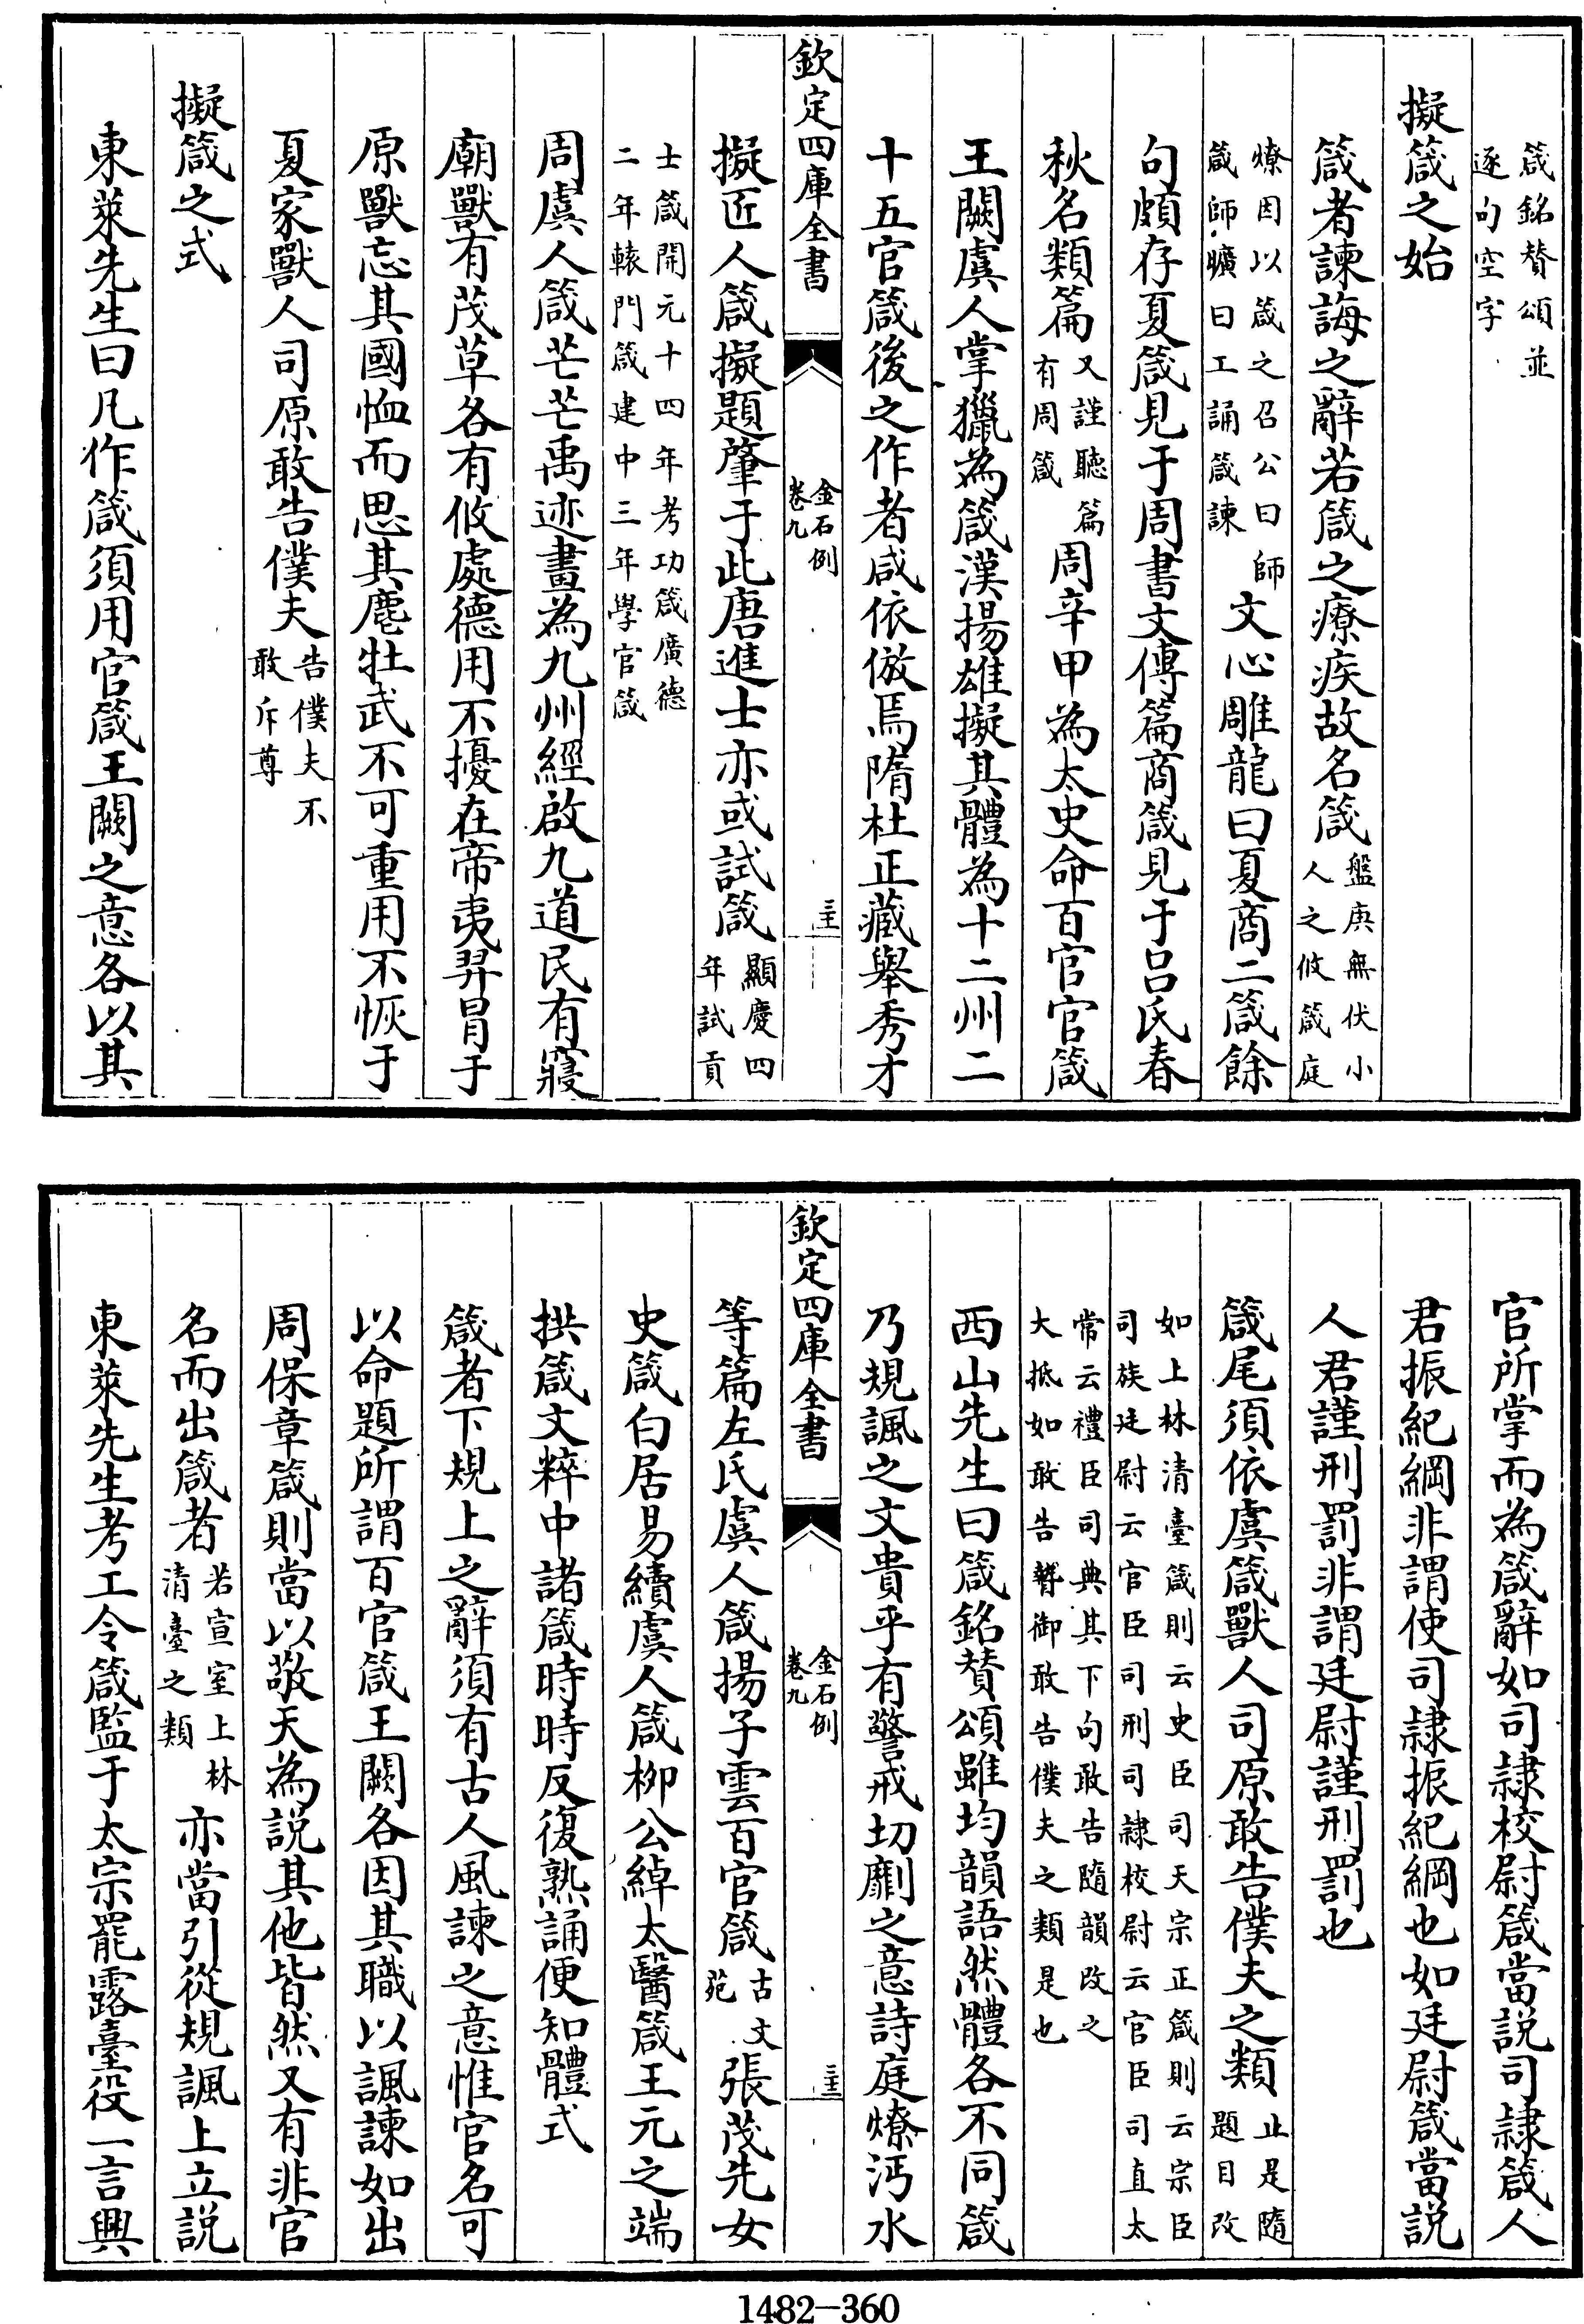 箴銘賛頌並逐句空字
擬箴之始
箴者諫誨之辭若箴之療疾故名箴盤庚無伏小人之攸箴庭
燎因以箴之召公曰師箴師曠曰工誦箴諫文心雕龍曰夏商二箴餘
句頗存夏箴見于周書文傳篇商箴見于吕氏春
秋名類篇又謹聽篇有周箴周辛甲為太史命百官官箴
王闕虞人掌獵為箴漢揚雄擬其體為十二州二
十五官箴後之作者咸依倣焉隋杜正藏舉秀才
欽定四庫全書 金石例 卷九
擬匠人箴擬題肇于此唐進士亦或試箴顯慶四年試貢
士箴開元十四年考功箴廣德二年轅門箴建中三年學官箴
周虞人箴芒芒禹迹畫為九州經啟九道民有寢
廟獸有茂草各有攸處德用不擾在帝夷羿冒于
原獸忘其國恤而思其麀牡武不可重用不恢于
夏家獸人司原敢告僕夫告僕夫不敢斥尊
擬箴之式
東萊先生曰凡作箴須用官箴王闕之意各以其
官所掌而為箴辭如司隸校尉箴當説司隸箴人
君振紀綱非謂使司隸振紀綱也如廷尉箴當説
人君謹刑罰非謂廷尉謹刑罰也
箴尾須依虞箴獸人司原敢告僕夫之類止是隨題目改
如上林清臺箴則云史臣司天宗正箴則云宗臣司族廷尉云官臣司刑司隸校尉云官臣司直太
常云禮臣司典其下句敢告隨韻改之大抵如敢告瞽御敢告僕夫之類是也
西山先生曰箴銘賛頌雖均韻語然體各不同箴
乃規諷之文貴乎有警戒切劘之意詩庭燎沔水
欽定四庫全書 金石例 卷九
等篇左氏虞人箴揚子雲百官箴古文苑張茂先女
史箴白居易續虞人箴栁公綽太醫箴王元之端
拱箴文粹中諸箴時時反復熟誦便知體式
箴者下規上之辭須有古人風諫之意惟官名可
以命題所謂百官箴王闕各因其職以諷諫如出
周保章箴則當以敬天為説其他皆然又有非官
名而出箴者若宣室上林清臺之類亦當引從規諷上立説
東萊先生考工令箴監于太宗罷露臺役一言興
1482—360